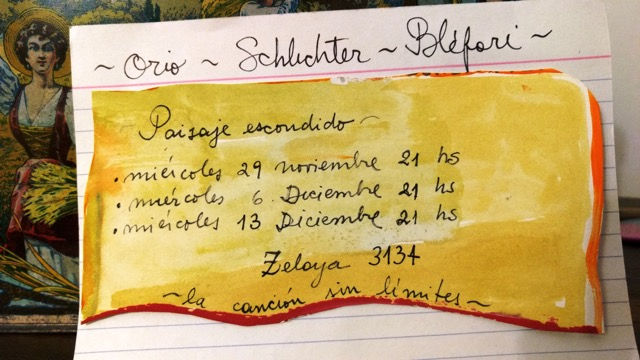 ~ Orio ~ Schlichter ~ Bléfari ~
~ Paisaje escondido ~
• miércoles 29 noviembre 21 hs
• miércoles 6 Diciembre 21 hs
• miércoles 13 Diciembre 21 hs
Zelaya 3134
~ la canción sin límites ~